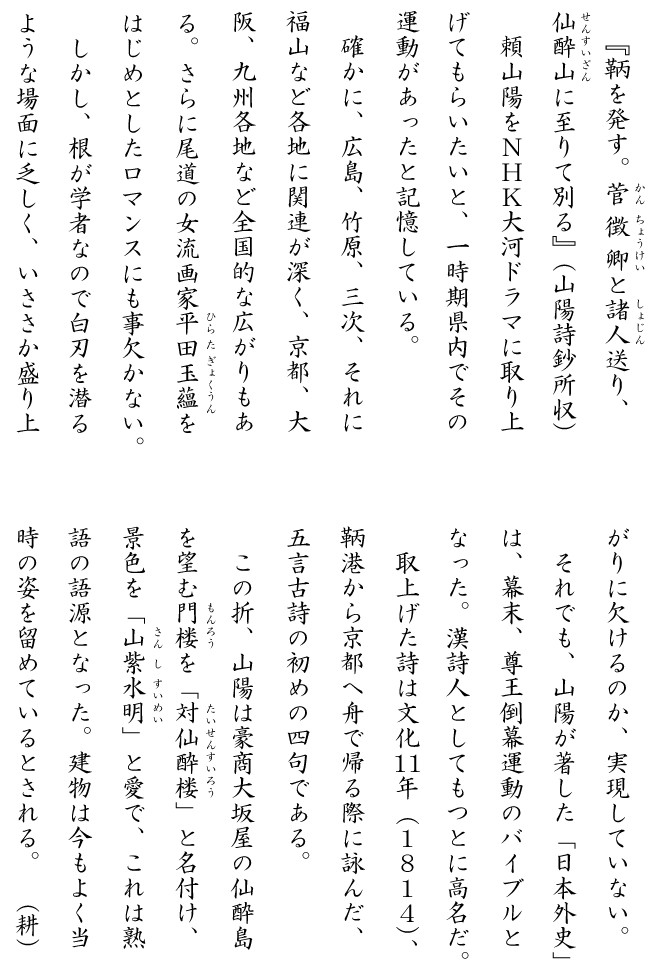 『鞆を発す。菅徴卿と諸人送り、
仙酔山に至りて別る』（山陽詩鈔所収）
頼山陽をＮＨＫ大河ドラマに取り上
げてもらいたいと、一時期県内でその
運動があったと記憶している。
確かに、広島、竹原、三次、それに
福山など各地に関連が深く、京都、大
阪、九州各地など全国的な広がりもあ
る。さらに尾道の女流画家平田玉蘊を
はじめとしたロマンスにも事欠かない。
しかし、根が学者なので白刃を潜る
ような場面に乏しく、いささか盛り上
がりに欠けるのか、実現していない。
それでも、山陽が著した「日本外史」
は、幕末、尊王倒幕運動のバイブルと
なった。漢詩人としてもつとに高名だ。
取上げた詩は文化11年（１８１４）、
鞆港から京都へ舟で帰る際に詠んだ、
五言古詩の初めの四句である。
この折、山陽は豪商大坂屋の仙酔島
を望む門楼を「対仙酔楼」と名付け、
景色を「山紫水明」と愛で、これは熟
語の語源となった。建物は今もよく当
時の姿を留めているとされる。　（耕）